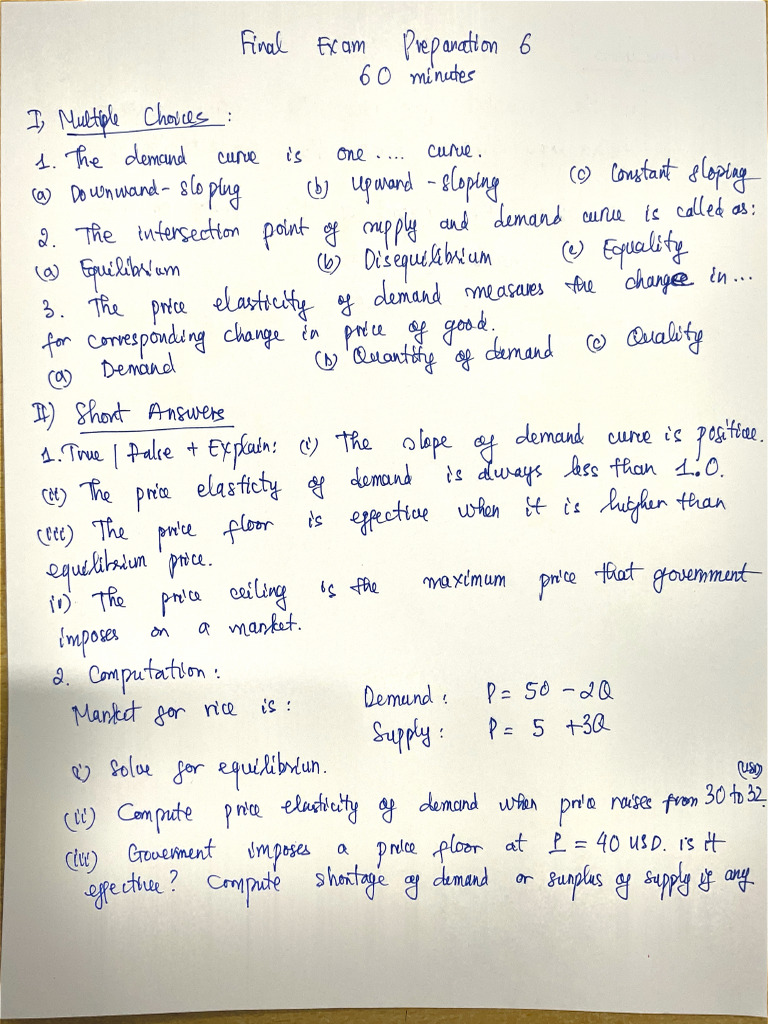 Final Exam Preparation 6
60 minutes
I) Multiple Choices :
1. The demand curve is one .... curve.
(a) Downward-sloping (b) Upward-sloping (c) Constant sloping
2. The intersection point of supply and demand curve is called as:
(a) Equilibrium (b) Disequilibrium (c) Equality
3. The price elasticity of demand measures the change in ...
for corresponding change in price of good.
(a) Demand (b) Quantity of demand (c) Quality
II) Short Answers
1. True / False + Explain: (i) The slope of demand curve is positive.
(ii) The price elasticty of demand is always less than 1.0.
(iii) The price floor is effective when it is higher than
equilibrium price.
iv) The price ceiling is the maximum price that government
imposes on a market.
2. Computation :
Market for rice is : Demand : P = 50 - 2Q
Supply : P = 5 + 3Q
i) Solve for equilibriun.
(ii) Compute price elasticity of demand when price raises from 30 to 32. (USD)
(iii) Goverment imposes a price floor at P = 40 USD. is it
effective? Compute shortage of demand or surplus of supply if any